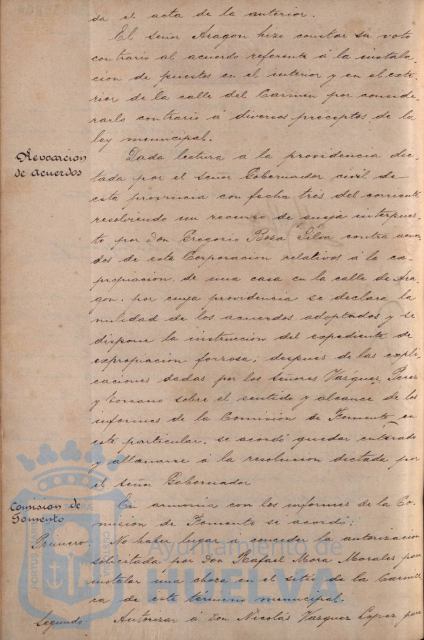 da el acta de la anterior.
El señor Aragon hizo constar su voto
contrario al acuerdo referente á la instala-
cion de puestos en el interior y en el exte-
rior de la calle del Carmen por conside-
rarlo contrario á diversos preceptos de la
ley municipal.
Revocacion
de acuerdos
Dada lectura a la providencia dic-
tada por el señor Gobernador civil de
esta provincia con fecha tres del corriente
resolviendo un recurso de queja interpues-
to por Don Gregorio Silva contra acuer-
dos de esta Corporacion relativos á la ex-
propiacion de una casa en la calle de Ara-
gon, por cuya providencia se declara la
nulidad de los acuerdos adoptados y se
dispone la instruccion del expediente de
expropiacion forzosa; despues de las expli-
caciones dadas por los señores Vazquez Perez
y Soriano sobre el sentido y alcance de los
informes de la Comision de Fomento en
este particular, se acordó quedar enterado
y allanarse á la resolucion dictada por
el señor Gobernador
Comision de
Fomento
En armonia con los informes de la Co-
mision de Fomento se acordó:
Primero No haber lugar á conceder la autorizacion
solicitada por Don Rafael Mora Morales para
instalar una choza en el sitio de la
de este término municipal.
Segundo Autorizar á Don Nicolás Vazquez Lopez para
Ayuntamiento de